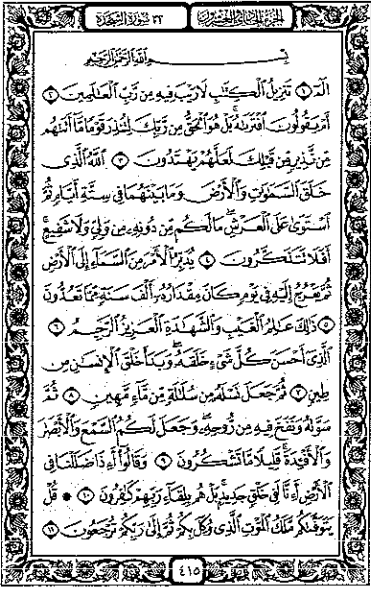 الجزء الحادي والعشرون ٣٢ سورة السجدة
بِسْمِ اللَّهِ الرَّحْمَٰنِ الرَّحِيمِ
الٓمٓ ١ تَنزِيلُ ٱلْكِتَٰبِ لَا رَيْبَ فِيهِ مِن رَّبِّ ٱلْعَٰلَمِينَ ٢
أَمْ يَقُولُونَ ٱفْتَرَىٰهُ ۚ بَلْ هُوَ ٱلْحَقُّ مِن رَّبِّكَ لِتُنذِرَ قَوْمًا مَّآ أَتَىٰهُم
مِّن نَّذِيرٍ مِّن قَبْلِكَ لَعَلَّهُمْ يَهْتَدُونَ ٣ ٱللَّهُ ٱلَّذِى
خَلَقَ ٱلسَّمَٰوَٰتِ وَٱلْأَرْضَ وَمَا بَيْنَهُمَا فِى سِتَّةِ أَيَّامٍ ثُمَّ
ٱسْتَوَىٰ عَلَى ٱلْعَرْشِ ۖ مَا لَكُم مِّن دُونِهِۦ مِن وَلِىٍّ وَلَا شَفِيعٍ ۚ
أَفَلَا تَتَذَكَّرُونَ ٤ يُدَبِّرُ ٱلْأَمْرَ مِنَ ٱلسَّمَآءِ إِلَى ٱلْأَرْضِ
ثُمَّ يَعْرُجُ إِلَيْهِ فِى يَوْمٍ كَانَ مِقْدَارُهُۥٓ أَلْفَ سَنَةٍ مِّمَّا تَعُدُّونَ
٥ ذَٰلِكَ عَٰلِمُ ٱلْغَيْبِ وَٱلشَّهَٰدَةِ ٱلْعَزِيزُ ٱلرَّحِيمُ ٦
ٱلَّذِىٓ أَحْسَنَ كُلَّ شَىْءٍ خَلَقَهُۥ ۖ وَبَدَأَ خَلْقَ ٱلْإِنسَٰنِ مِن
طِينٍ ٧ ثُمَّ جَعَلَ نَسْلَهُۥ مِن سُلَٰلَةٍ مِّن مَّآءٍ مَّهِينٍ ٨ ثُمَّ
سَوَّىٰهُ وَنَفَخَ فِيهِ مِن رُّوحِهِۦ ۖ وَجَعَلَ لَكُمُ ٱلسَّمْعَ وَٱلْأَبْصَٰرَ
وَٱلْأَفْـِٔدَةَ ۚ قَلِيلًا مَّا تَشْكُرُونَ ٩ وَقَالُوٓا۟ أَءِذَا ضَلَلْنَا فِى
ٱلْأَرْضِ أَءِنَّا لَفِى خَلْقٍ جَدِيدٍۭ ۚ بَلْ هُم بِلِقَآءِ رَبِّهِمْ كَٰفِرُونَ ١٠ ۞ قُلْ
يَتَوَفَّىٰكُم مَّلَكُ ٱلْمَوْتِ ٱلَّذِى وُكِّلَ بِكُمْ ثُمَّ إِلَىٰ رَبِّكُمْ تُرْجَعُونَ ١١
٤١٥